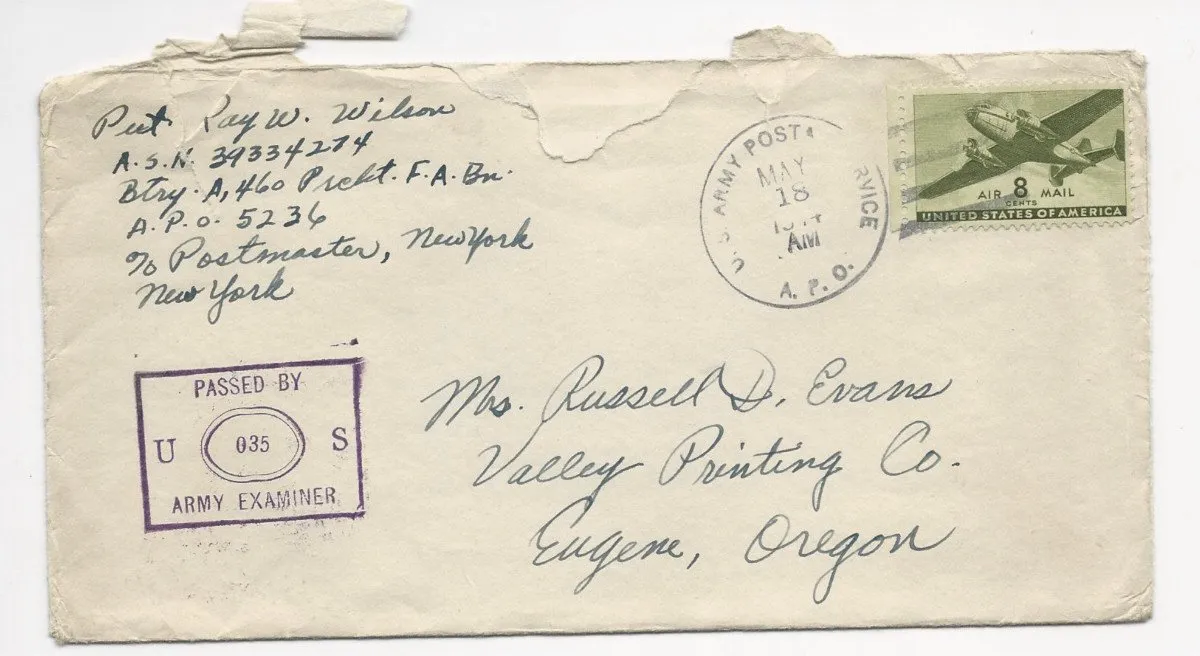 Pvt. Ray W. Wilson
A.S.N. 39334274
Btry. A, 460 Prcht. F.A. Bn.
A.P.O. 5236
c/o Postmaster, New York
New York
U.S. ARMY POST RVICE
MAY
18
AM
A.P.O.
AIR 8 MAIL
CENTS
UNITED STATES OF AMERICA
PASSED BY
U 035 S
ARMY EXAMINER
Mrs. Russell D. Evans
Valley Printing Co.
Eugene, Oregon